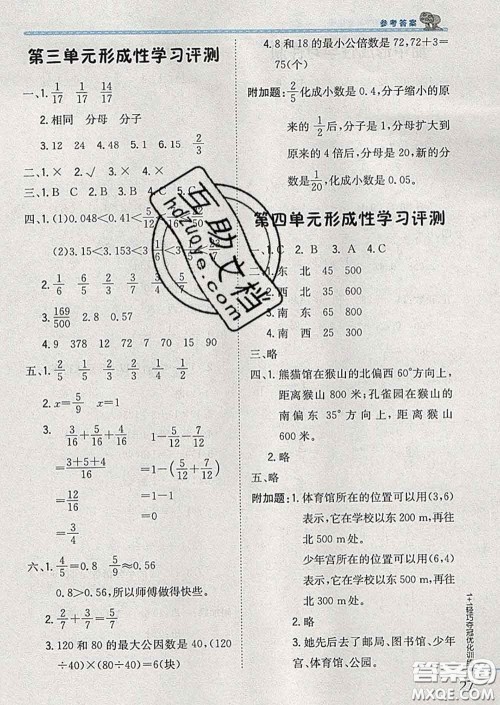 参考答案
第三单元形成性学习评测
一、1. 1/17 1/17 14/17
3. 相同 分母 分子
4. 3.15 4.48 5.1 6.15 2/3
二、1. × 2. √ 3. × 4. ×
三、1. B C 2. B 3. C
四、1. (1) 0.048<0.41<5/12
(2) 3.15<3.153
2. 1/6 5/6 1/3
3. 169/500 2.8
4. 9 378 12 72 30 70
五、1. 1/2 1/3 1/5 1/2
2. x=5/9 x=1
3. 3/16+5/16+4/16 1/2+(5/12+7/12)
=(3+5+4)/16 =1/2+(5/12+7/12)
=12/16 =1/2+1
=3/4 =1 1/2
六、1. 4/5=0.8 5/9≈0.56
0.8>0.56, 所以师傅做得快些。
2. 1/7+2/7=3/7
3. 120 和 80 的最大公因数是 40, (120
÷40)×(80÷40)=6(块)
4. 8 和 18 的最小公倍数是 72, 72+3=
75(个)
附加题: 2/5 化成小数是 0.4, 分子缩小的原
来的 1/2 后, 分子是 1, 分母扩大到
原来的 4 倍后, 分母是 20, 新的
分数是 1/20, 化成小数是 0.05。
第四单元形成性学习评测
一、1. C 2. B 3. A 4. C
二、1. 东 北 45 500
2. 西 北 35 600
3. 东 南 65 800
4. 南 西 25 300
三、略
四、1. 熊猫馆在猴山的北偏西 60°方向上,
距离猴山 800 米; 孔雀园在猴山的
南偏东 35°方向上, 距离猴山
600 米。
五、略
附加题: 1. 体育馆所在的位置可以用(3,6)
表示, 它在学校以东 200 m, 再往
北 500 m 处。
少年宫所在的位置可以用(6,4)
表示, 它在学校以东 500 m, 再往
北 300 m 处。
2. 略
3. 她先后去了邮局、图书馆、少年
宫、体育馆、公园。
互助文档
hdzuoye.com
1+1轻巧夺冠优化训练
27
答案圈
MXQE.COM